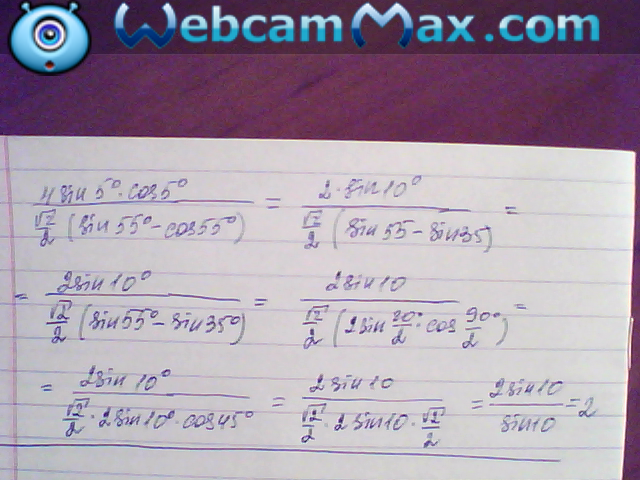 WebcamMax.com
4 sin 5° · cos 5° / √2/2 (sin 55° - cos 55°) = 2 · sin 10° / √2/2 (sin 55 - sin 35) =
= 2 sin 10° / √2/2 (sin 55° - sin 35°) = 2 sin 10 / √2/2 (2 sin 20°/2 · cos 90°/2) =
= 2 sin 10° / √2/2 · 2 sin 10° · cos 45° = 2 sin 10 / √2/2 · 2 sin 10 · √2/2 = 2 sin 10 / sin 10 = 2